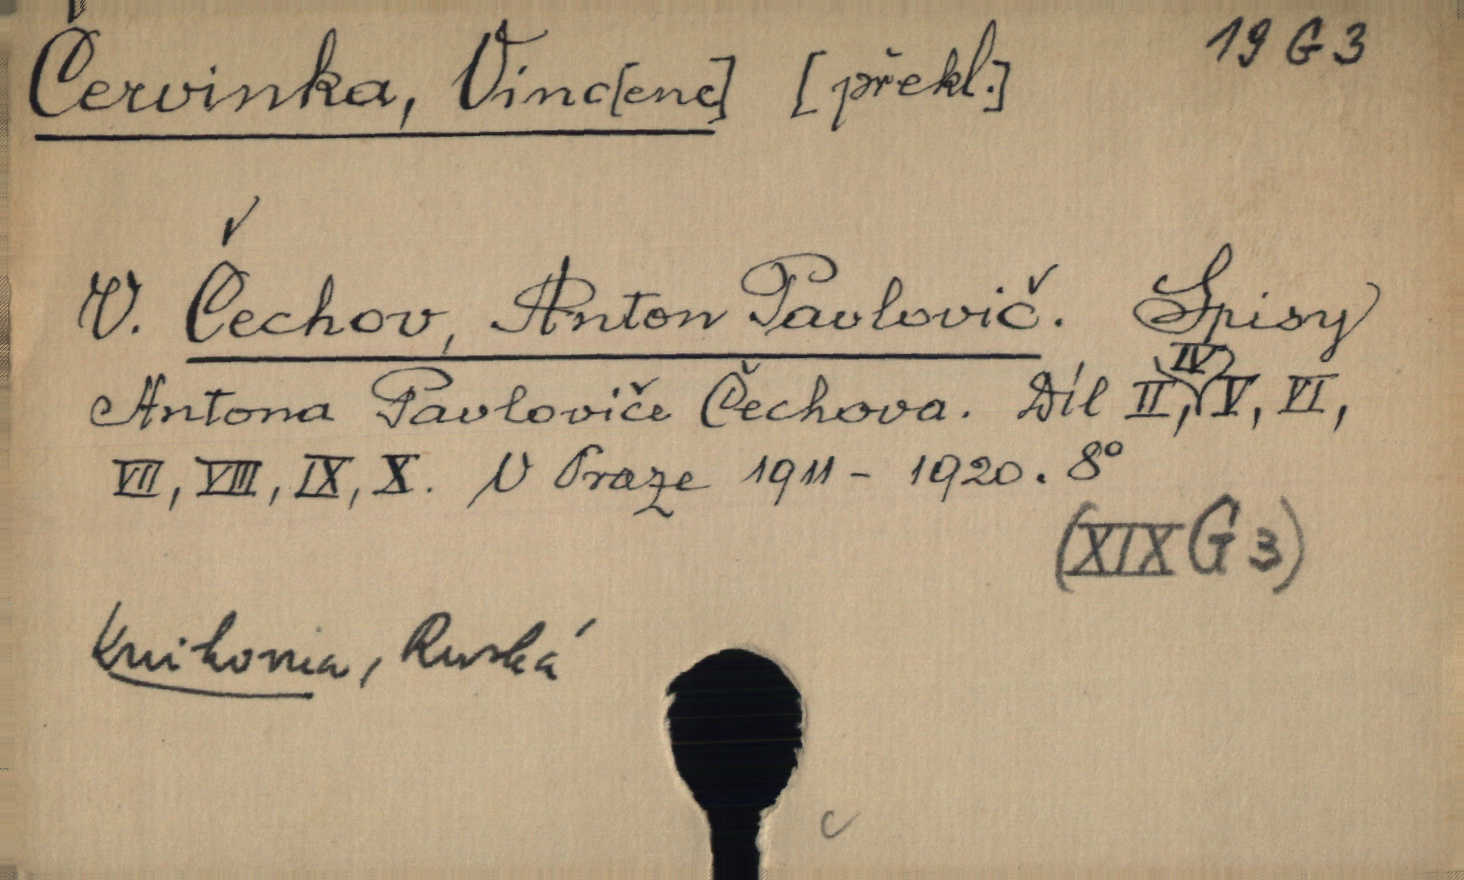 Červinka, Vinc[enc] [překl.] 19 G 3
V. Čechov, Anton Pavlovič. Spisy
Antona Pavloviče Čechova. Díl II, IV, V, VI,
VII, VIII, IX, X. V Praze 1911 - 1920. 8°
(XIX G 3)
Knihovna, Ruská
c